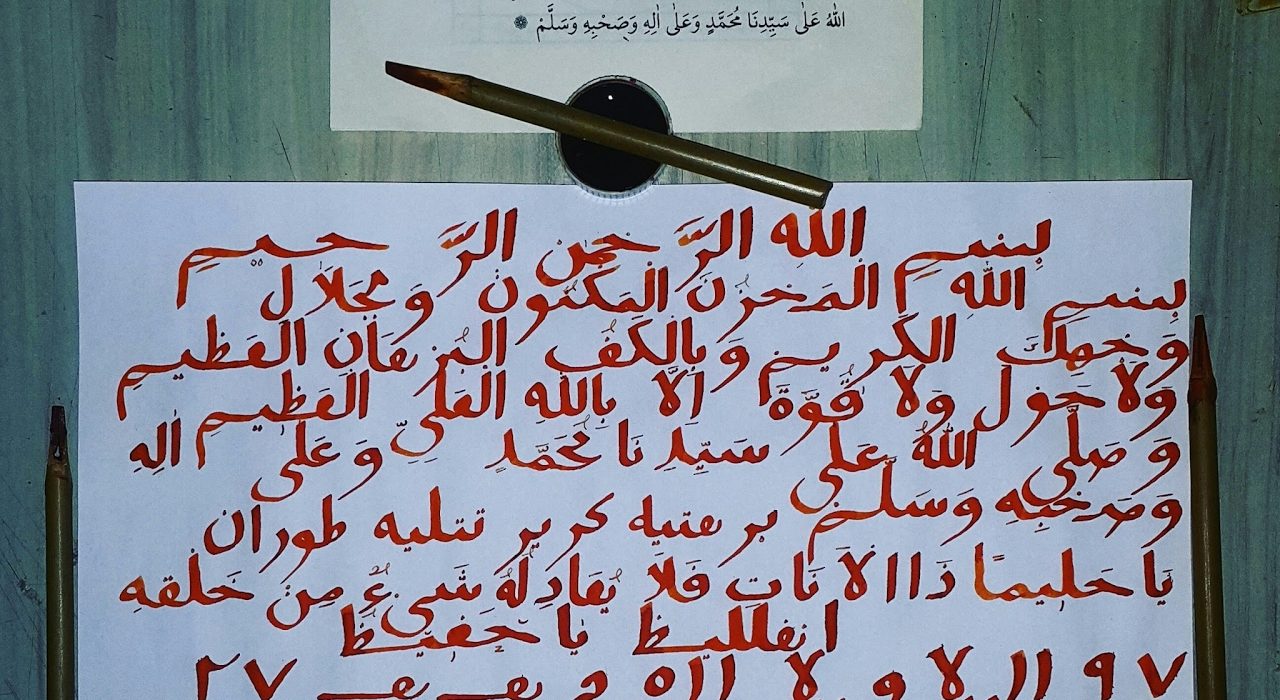 اللهُ عَلٰى سَيِّدِنَا مُحَمَّدٍ وَعَلٰى اٰلِهِ وَصَحْبِهِ وَسَلَّمْ
بِسْمِ اللهِ الرَّحْمٰنِ الرَّحِيمِ
بِسْمِ اللهِ الْمَخْزُنِ الْمَكْنُونِ وَبِجَلَالِ
وَجْهِكَ الْكَرِيمِ وَبِالْكَفُ الْبُرْهَانِ الْعَظِيمِ
وَلَا حَوْلَ وَلَا قُوَّةَ اِلَّا بِاللهِ الْعَلِيِّ الْعَظِيمِ
وَصَلَّى اللهُ عَلٰى سَيِّدِنَا مُحَمَّدٍ وَعَلٰى اٰلِهِ
وَصَحْبِهِ وَسَلَّمْ برهتيه كرير تتليه طوران
يَا حَلِيمًا ذَا الْاَنَاتِ فَلَا يُعَادِلُهُ شَيْءٌ مِنْ خَلْقِهِ
يَا حَفِيظُ